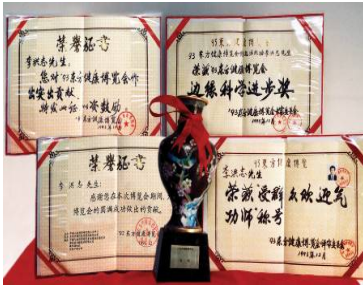 荣誉证书
李洪志先生：
您对'93东方健康博览会作
出突出贡献，
特发此证 资鼓励
'93东方健康博览会
93东方健康博览会
李洪志先生：
荣获'93东方健康博览会
边缘科学进步奖
'93东方健康博览会评审委员会
1993年12月
荣誉证书
李洪志先生：
感谢您在本次博览会期间，
博览会的圆满成功做出的贡献。
'93东方健康博览
93东方健康博览
李洪志先生：
荣获受群众欢迎气
功师称号
'93东方健康博览会评审委员会
1993年12月